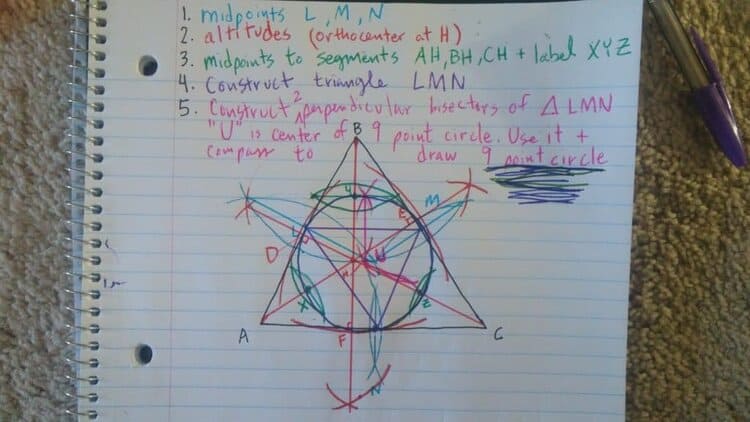 1. midpoints L, M, N
2. altitudes (orthocenter at H)
3. midpoints to segments AH, BH, CH + label XYZ
4. Construct triangle LMN
5. Construct 2 perpendicular bisectors of Δ LMN
"U" is center of 9 point circle. Use it +
compass to draw 9 point circle
B
Y
E
M
L
D
H
U
X
Z
A
F
C
N